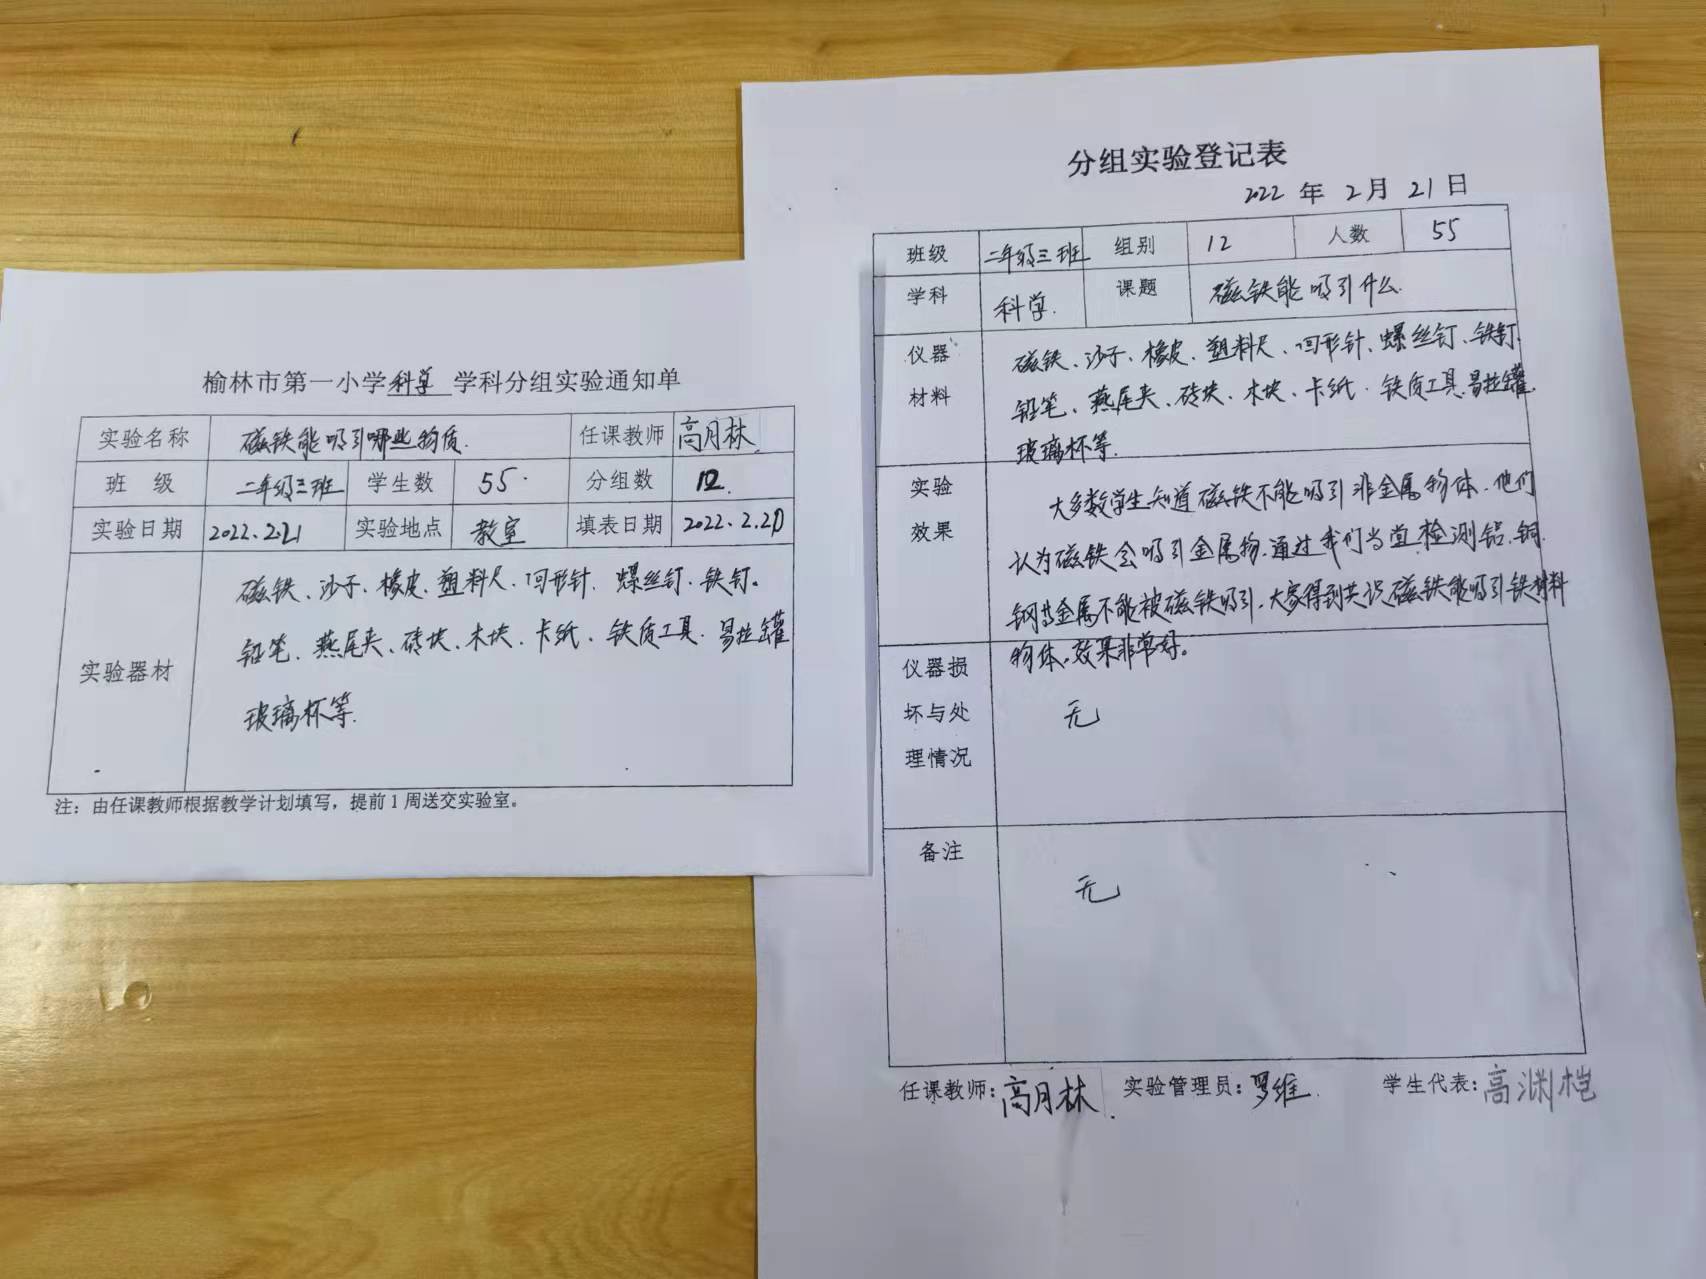 榆林市第一小学科学 学科分组实验通知单
实验名称 磁铁能吸引哪些物质. 任课教师 高月林
班 级 二年级三班 学生数 55 分组数 12.
实验日期 2022.2.21 实验地点 教室 填表日期
实验器材
磁铁、沙子、橡皮、塑料尺、回形针、螺丝钉、铁钉。
铅笔、燕尾夹、砖块、木块、卡纸、铁质工具、易拉罐
玻璃杯等.
注：由任课教师根据教学计划填写，提前1周送交实验室。
分组实验登记表
2022 年 2 月 21 日
班级 二年级三班 组别 12 人数 55
学科 科学. 课题 磁铁能吸引什么.
仪器
材料
磁铁、沙子、橡皮、塑料尺、回形针、螺丝钉、铁钉.
铅笔、燕尾夹、砖块、木块、卡纸、铁质工具、易拉罐
玻璃杯等.
实验
效果
大多数学生知道磁铁不能吸引非金属物体.他们
认为磁铁会吸引金属物.通过我们当堂检测铝、铜、
钢等金属不能被磁铁吸引.大家得到共识磁铁能吸引铁材料
物体.效果非常好。
仪器损
坏与处
理情况
无
备注
无
任课教师：高月林. 实验管理员：罗维. 学生代表：高渊桤